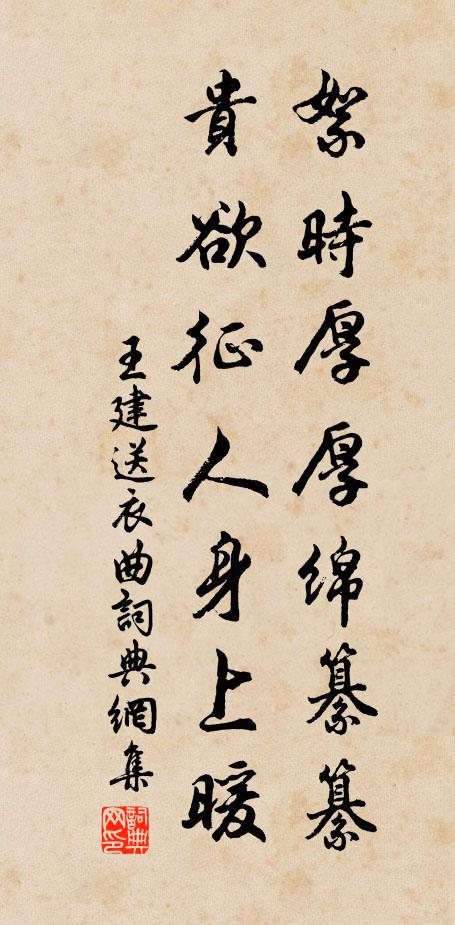 絮時厚厚綿纂纂
貴欲征人身上暖
王建送衣曲詞典網集
詞典网印